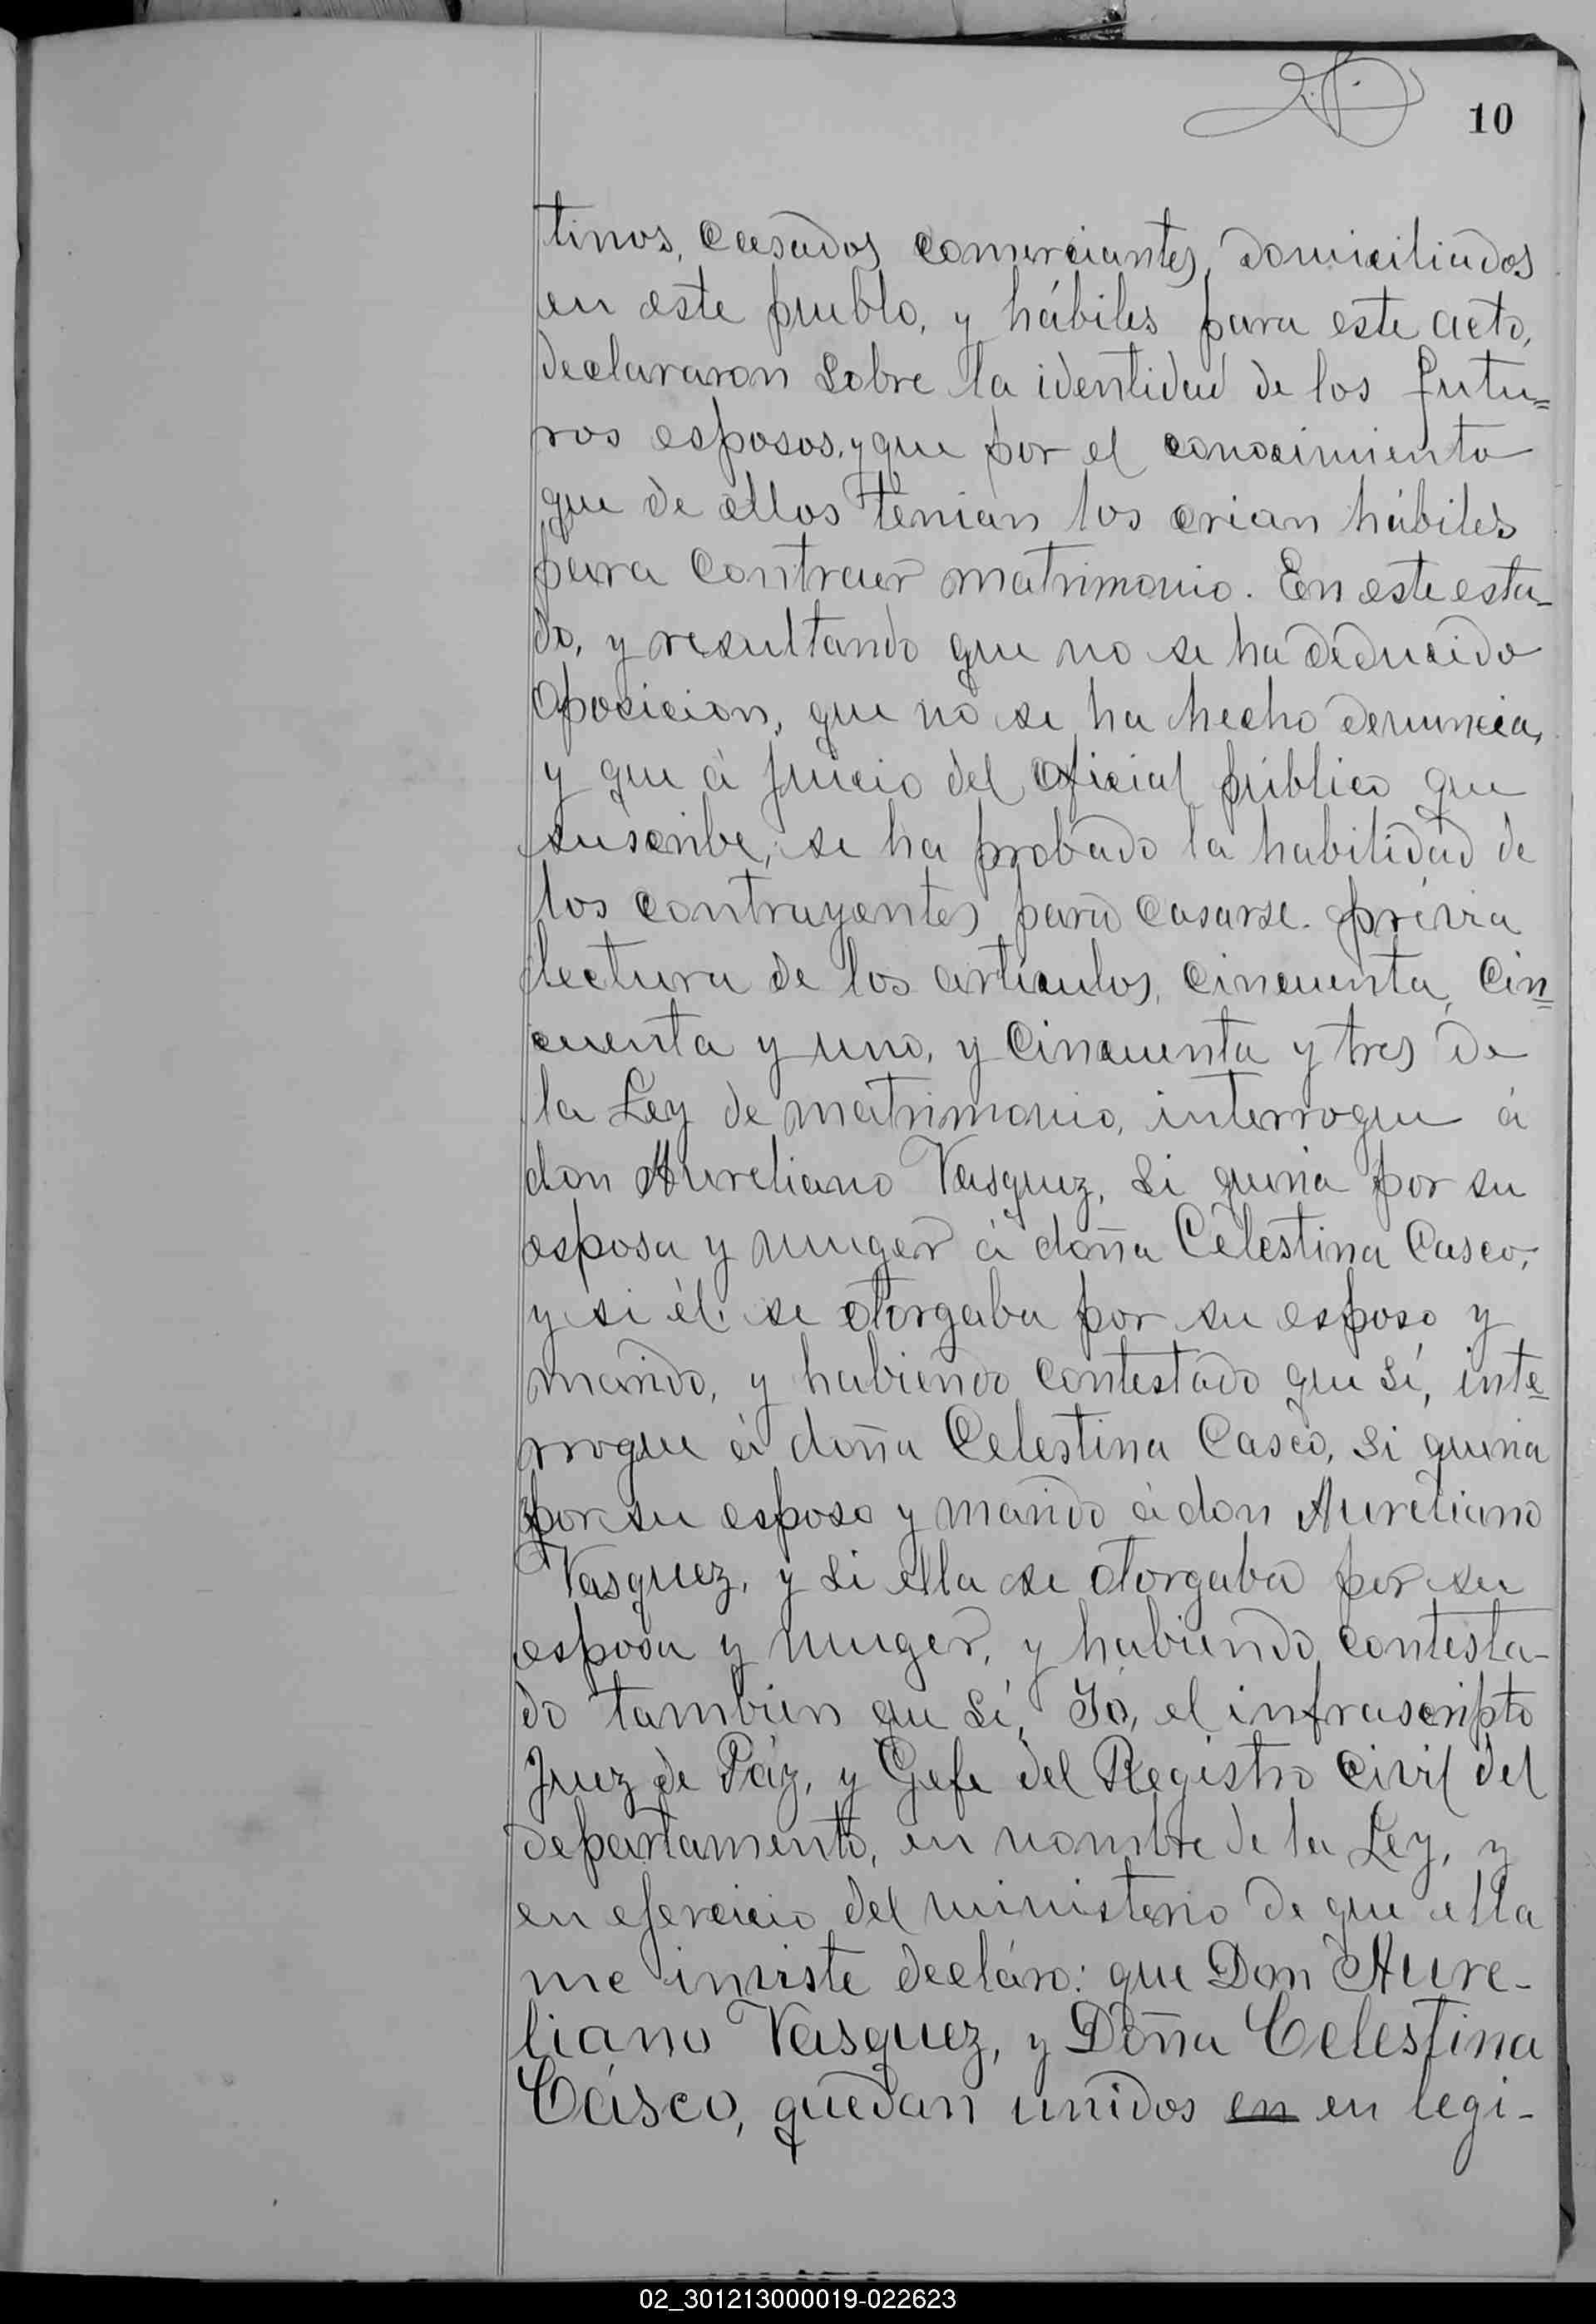 10
tinos, casados, comerciantes, domiciliados
en este pueblo, y hábiles para este acto,
declararon sobre la identidad de los futu=
ros esposos, y que por el conocimiento
que de ellos tenian los crian hábiles
para contraer matrimonio. En este esta-
do, y resultando que no se ha deducido
oposicion, que no se ha hecho denuncia,
y que á juicio del oficial público que
suscribe, se ha probado la habilidad de
los contrayentes para casarse. prévia
lectura de los articulos, cincuenta, cin=
cuenta y uno, y cincuenta y tres de
la Ley de matrimonio, interrogue á
don Aureliano Vasquez, si queria por su
esposa y muger á doña Celestina Casco,
y si él se otorgaba por su esposo y
marido, y habiendo contestado que sí, inte=
rrogue á doña Celestina Casco, si queria
por su esposo y marido á don Aureliano
Vasquez, y si ella se otorgaba por su
esposa y muger, y habiendo contesta-
do tambien que sí, Yó, el infrascripto
Juez de Páz, y Gefe del Registro Civil del
departamento, en nombre de la Ley, y
en ejercicio del ministerio de que ella
me inviste decláro: que Don Aure-
liano Vasquez, y Doña Celestina
Cásco, quedan unidos en en legi-
02_301213000019-022623